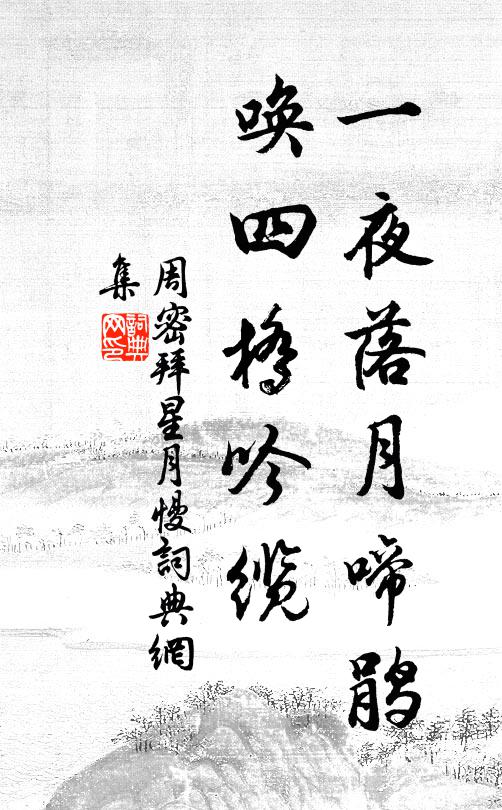 一夜落月啼鹃
唤四橋吟缆
周密拜星月慢詞典網
集
詞典网印